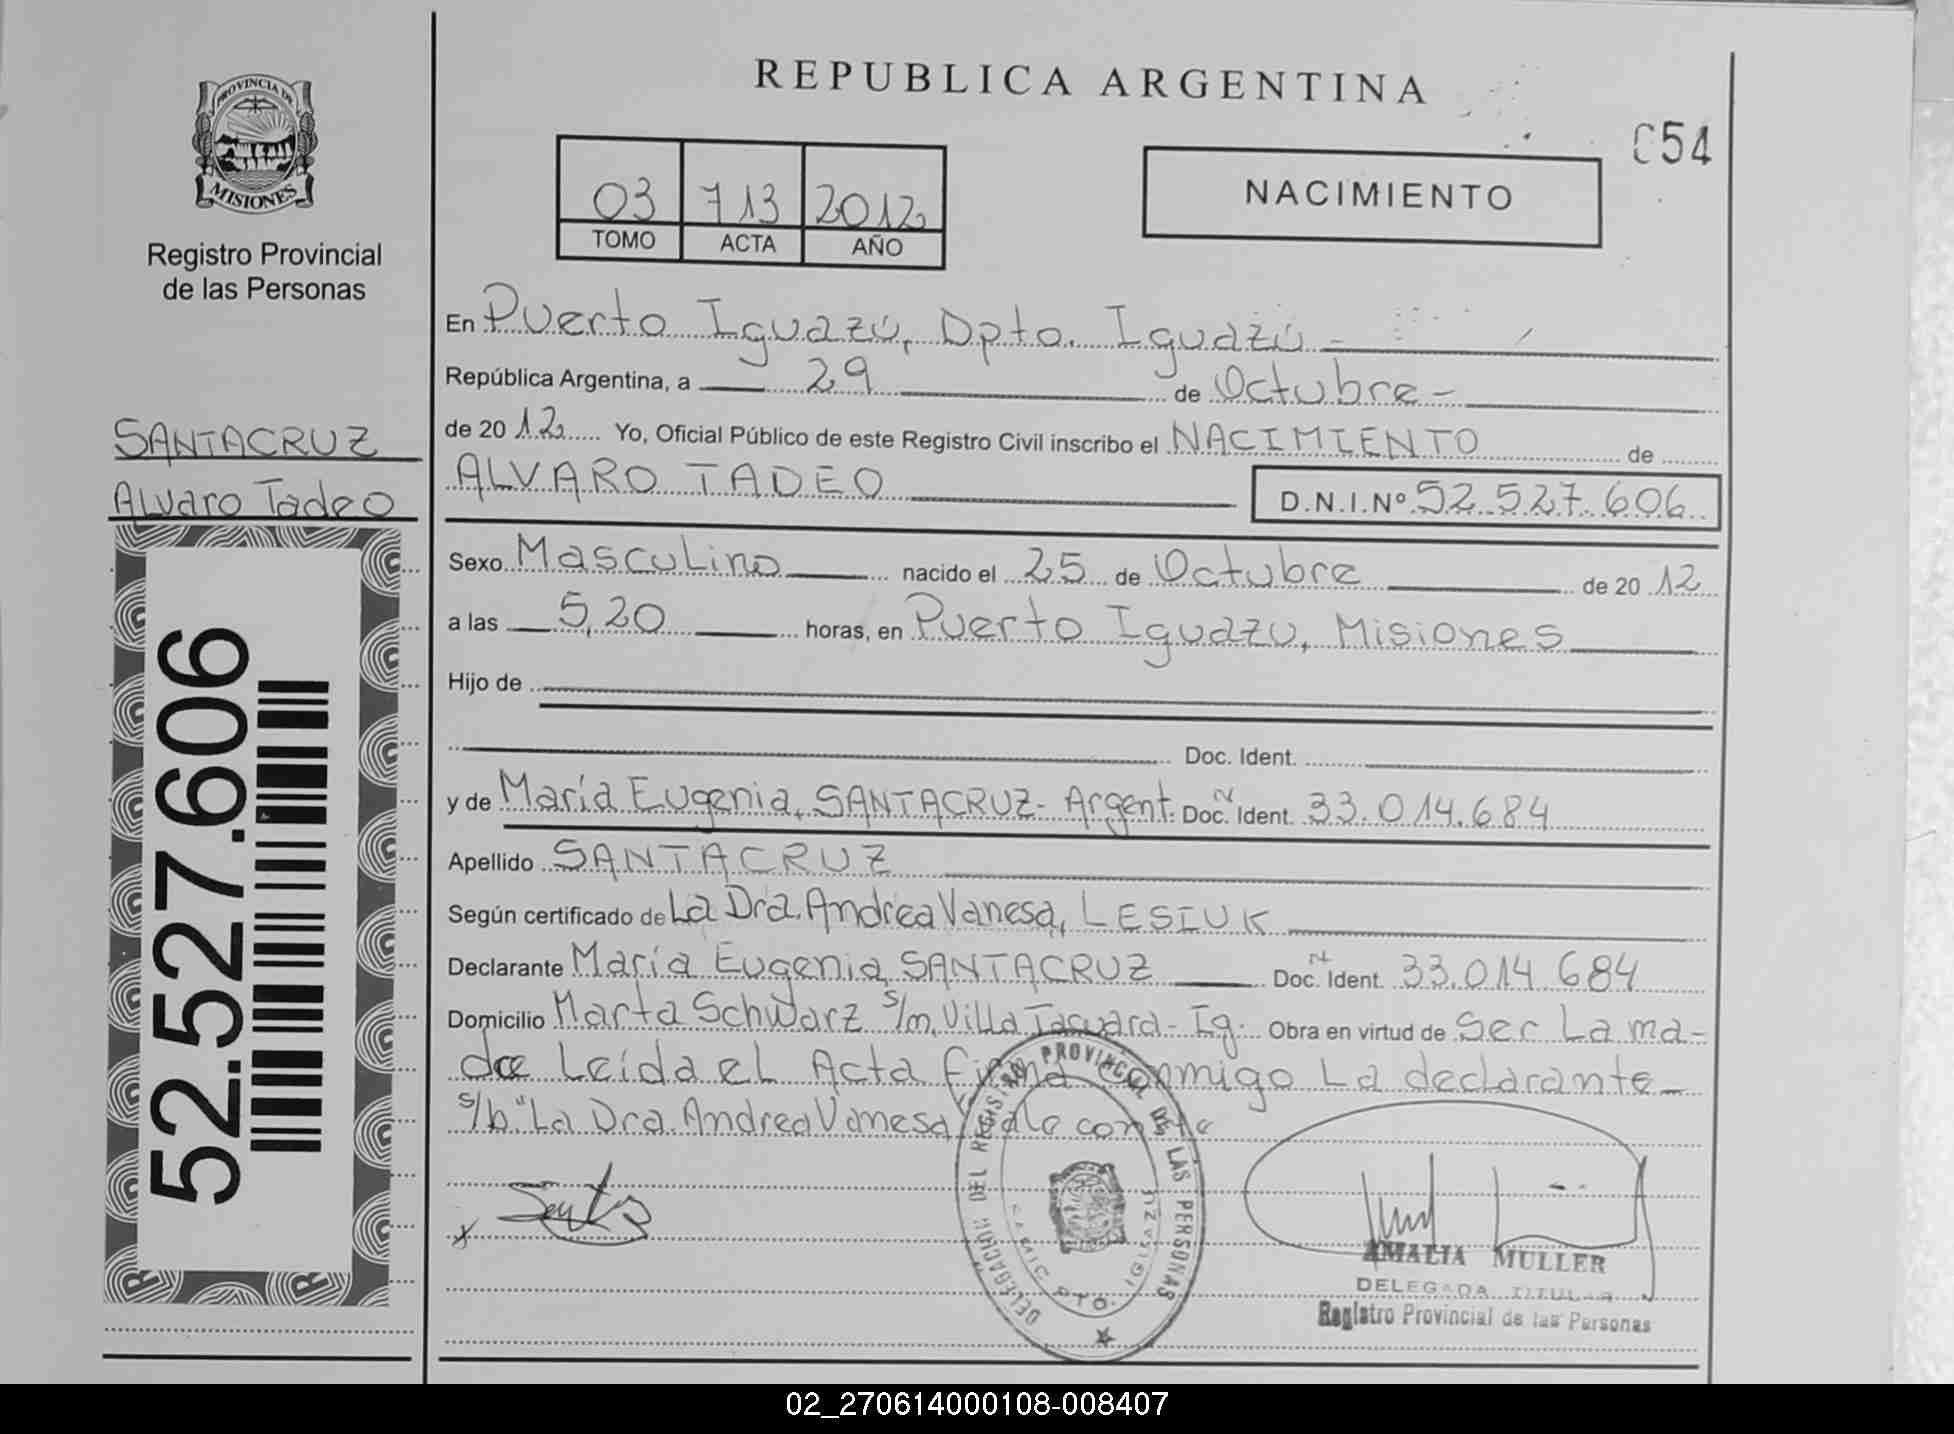 REPUBLICA ARGENTINA
PROVINCIA DE
MISIONES
Registro Provincial
de las Personas
054
03 713 2012
TOMO ACTA AÑO
NACIMIENTO
SANTACRUZ
Alvaro Tadeo
52.527.606
En Puerto Iguazú, Dpto. Iguazú -
República Argentina, a 29 de Octubre -
de 2012 Yo, Oficial Público de este Registro Civil inscribo el NACIMIENTO de
ALVARO TADEO D.N.I.Nº 52.527.606
Sexo Masculino nacido el 25 de Octubre de 2012
a las 5,20 horas, en Puerto Iguazu, Misiones
Hijo de
Doc. Ident.
y de María Eugenia, SANTACRUZ - Argent. Doc. Ident. 33.014.684
Apellido SANTACRUZ
Según certificado de La Dra. Andrea Vanesa, LESIUK
Declarante María Eugenia SANTACRUZ Doc. Ident. 33.014.684
Domicilio Marta Schwarz s/m, Villa Tacuara - Ig. Obra en virtud de Ser La ma-
dre Leída el Acta Firma Conmigo La declarante -
s/b "La Dra. Andrea Vanesa" Vale conste
DELEGACION DEL REGISTRO PROVINCIAL DE LAS PERSONAS
AMALIA MULLER
DELEGADA TITULAR
Registro Provincial de las Personas
02_270614000108-008407